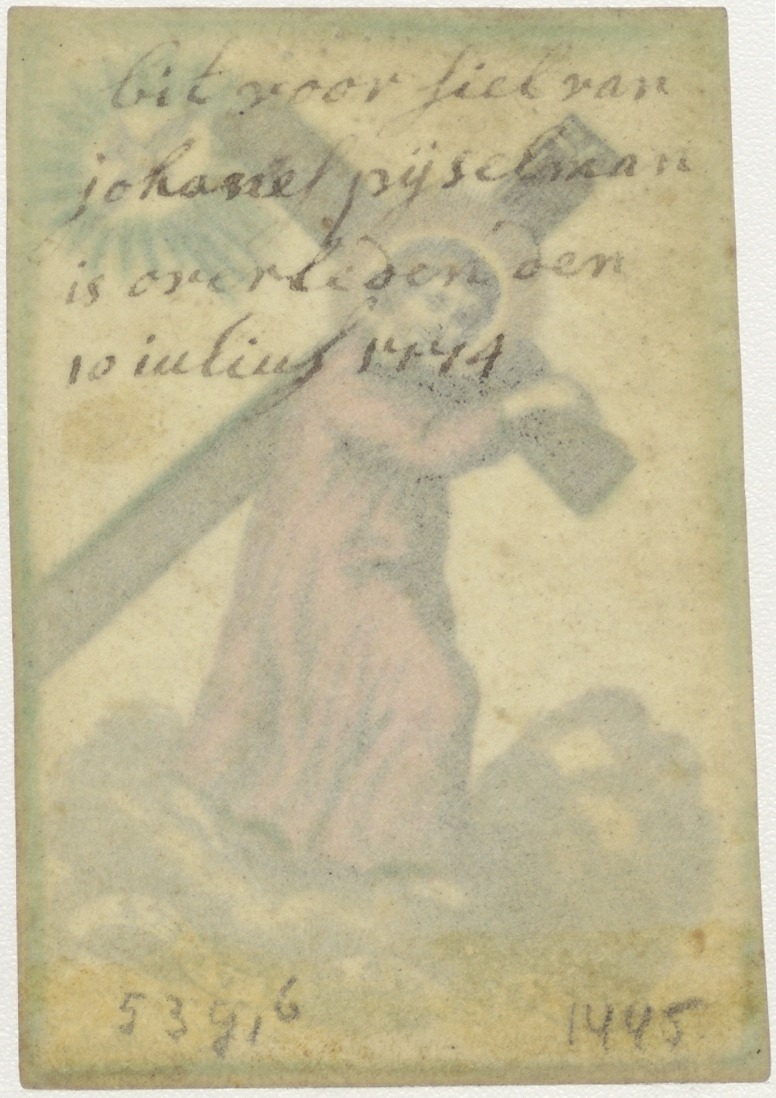 bit voor siel van
johanes pijselman
is overleden den
10 iulius 1774
53 g, 6 1445